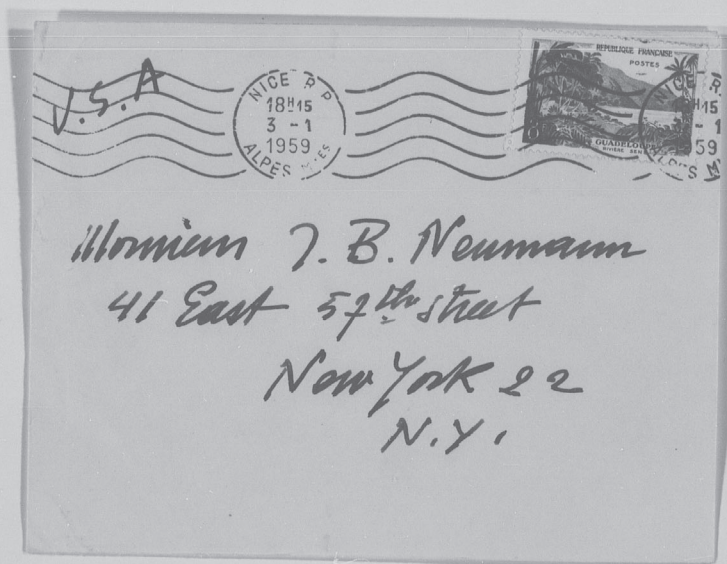 U.S.A
NICE R.P.
18H15
3 - 1
1959
ALPES Mmes
REPUBLIQUE FRANÇAISE
POSTES
GUADELOU
RIVIÈRE SEN
NICE R.
H15
- 1
59
ALPES M
Monsieur J. B. Neumann
41 East 57th Street
New York 22
N.Y.